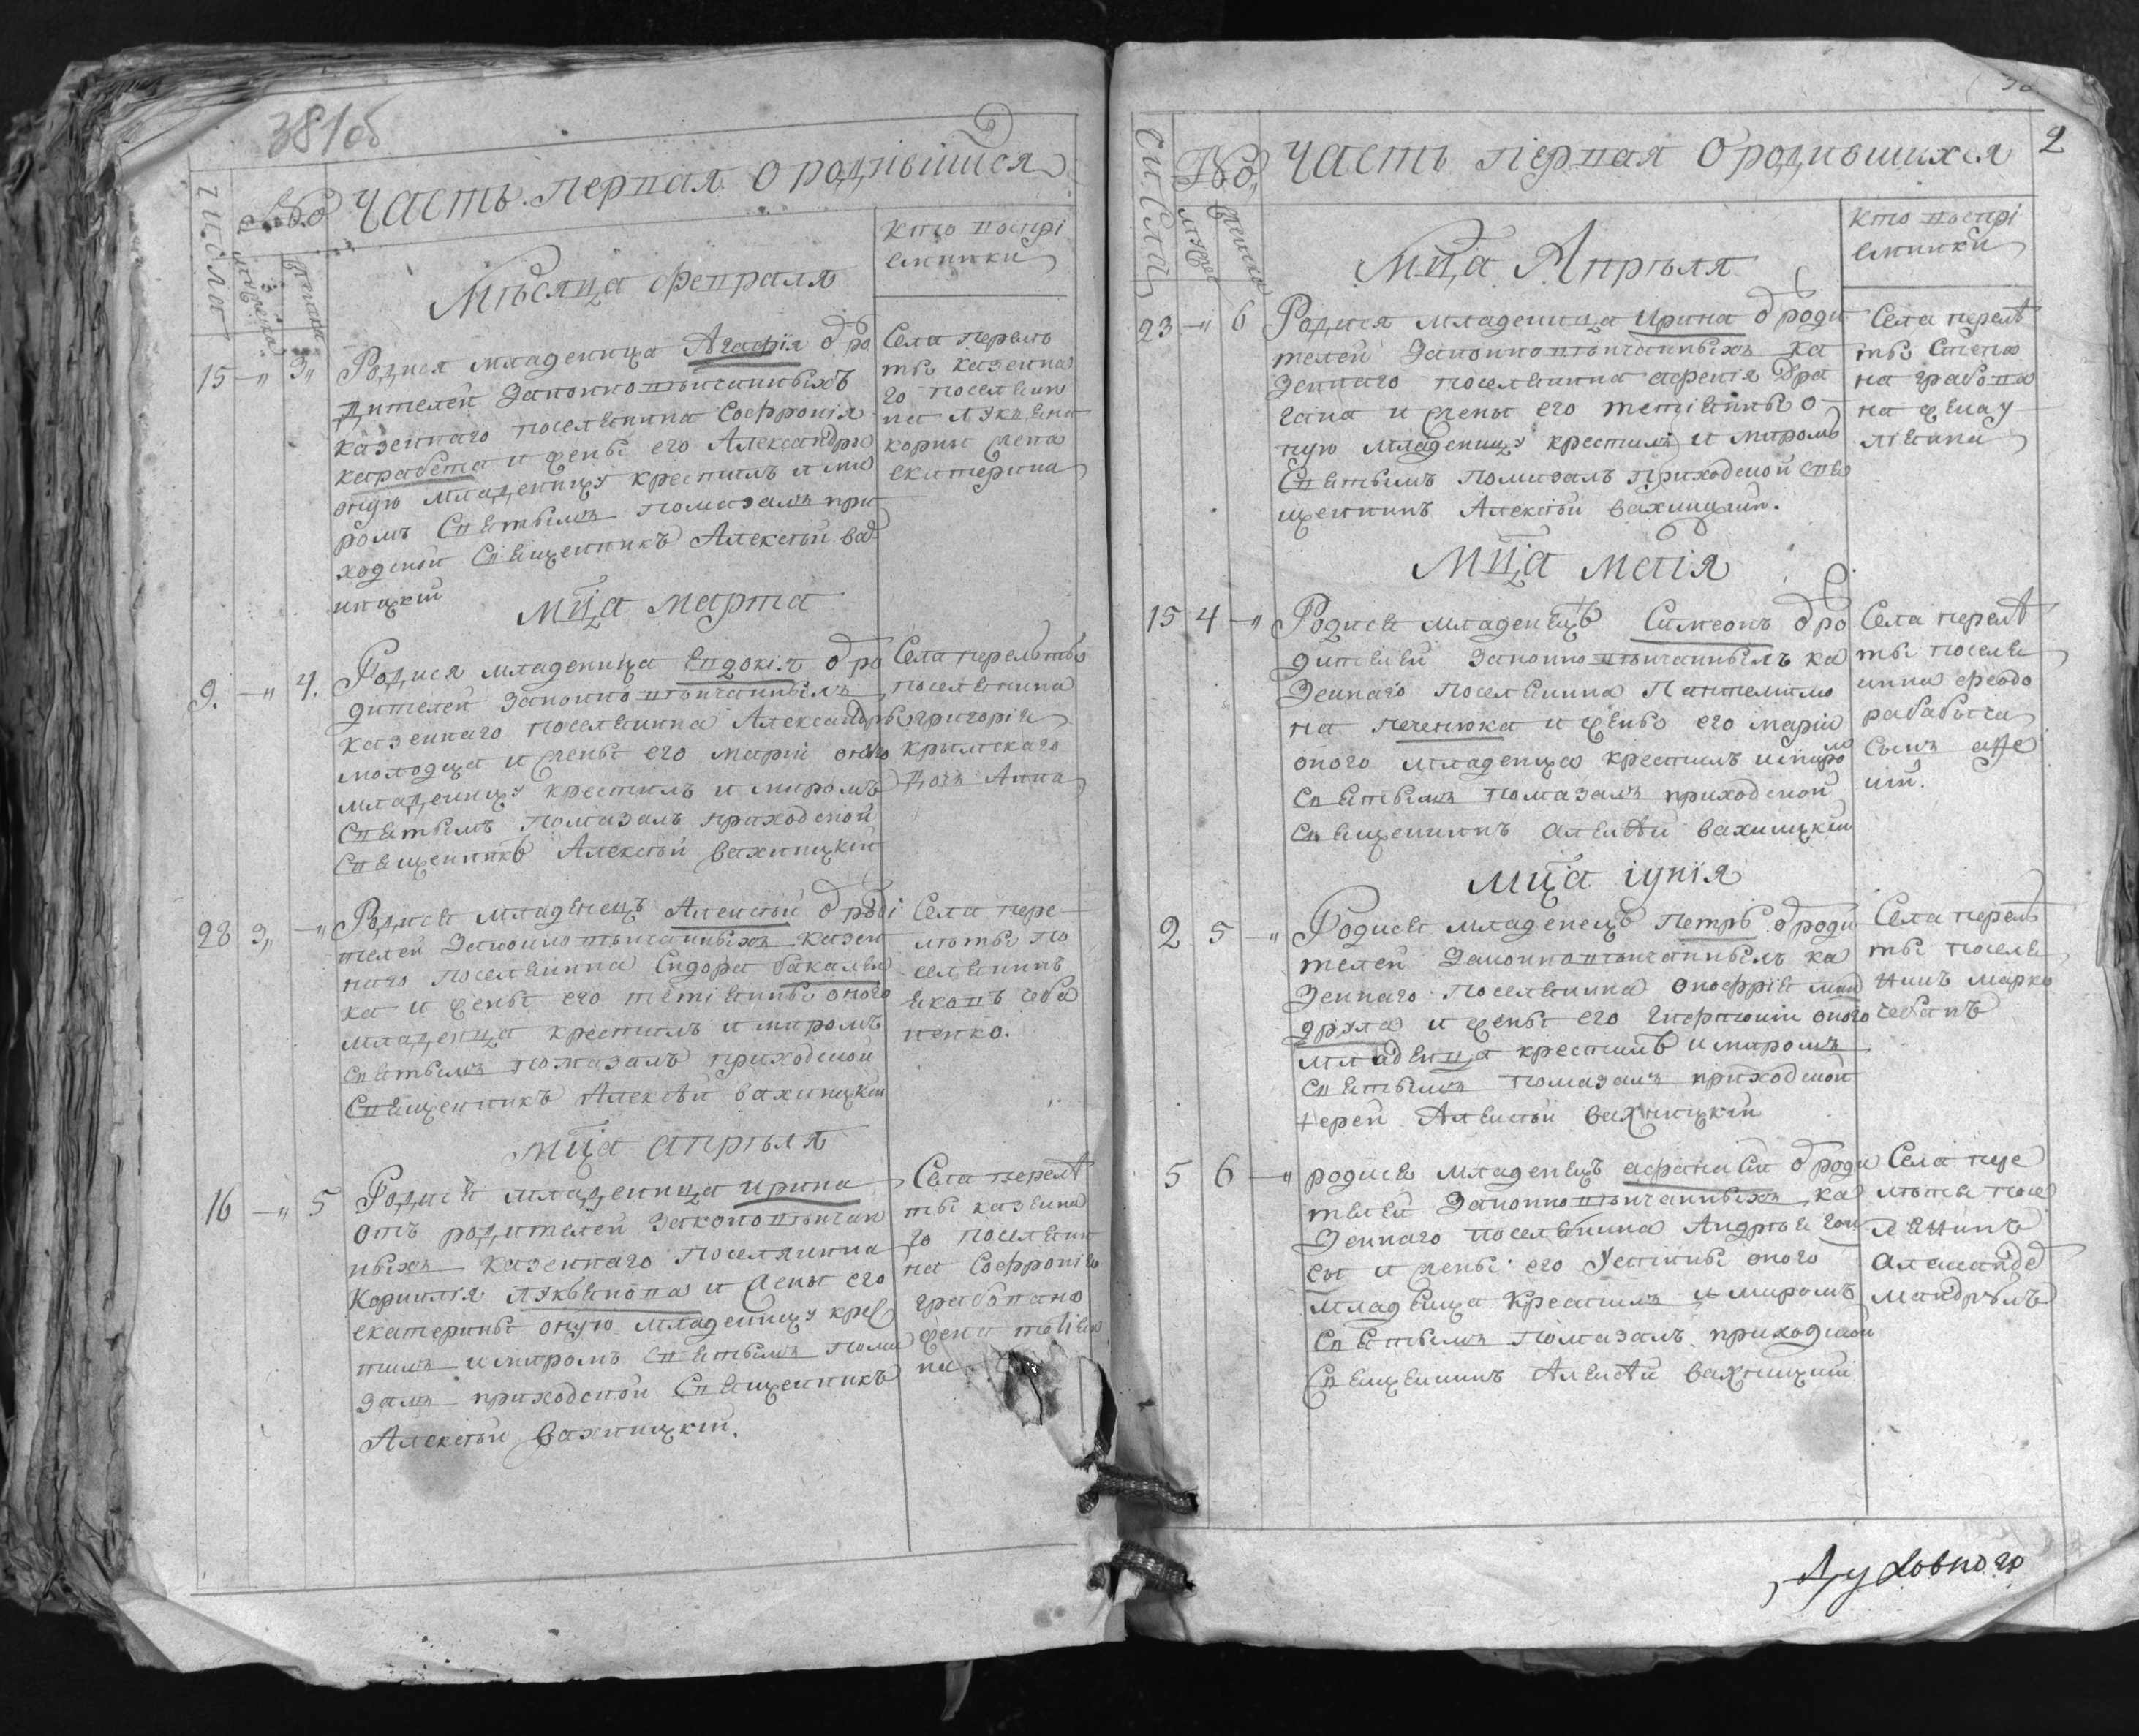 381об
числа
Часть первая о родившихся
Кто воспрі
емники
Мѣсяца Февраля
15 „ 3„
Родися младеница Агафія ѿ ро
дителей законновѣнчанныхъ
казеннаго поселянина Софронія
карабета и жены его Александры
оную младеницу крестилъ и ми
ромъ святымъ помазалъ при
ходской священникъ Алексѣй вах
ницкій
Села Перелѣ
ты казенна
го поселени
на Лукьяна
корни жена
екатерина
Мца Марта
9. „ 4.
Родися младеница Евдокія ѿ ро
дителей законновѣнчаннымъ
казеннаго поселянина Александры
молодца и жены его Маріи оную
младеницу крестилъ и миромъ
святымъ помазалъ приходской
священникъ Алексѣй вахницкій
Села перелѣты
поселянина
григорія
крымскаго
дочь Анна
28 3„ „
Родися младенецъ Алексѣй ѿ роди
телей законновѣнчаныхъ казен
наго поселянина Сидора бакален
ка и жены его тетіянны оного
младенца крестилъ и миромъ
святымъ помазалъ приходской
священникъ Алексѣй вахницкій
Села пере
лѣты по
селянинъ
яковъ чеба
ненко.
мца апрѣля
16 „ 5
Родися младеница ирина
отъ родителей законовѣнчан
ныхъ казеннаго поселянина
Корнилія Лукьянова и жены его
екатерины оную младеницу крес
тилъ и миромъ святымъ пома
залъ приходской священникъ
Алексѣй вахницкій.
Села перелѣ
ты казенна
го поселяни
на Софронія
грабована
жена тетіян
на
2
Числа
Часть первая о родившихся
Кто воспрі
емники
Мца Апрѣля
23 „ 6
Родися младеница ирина ѿ роди
телей законновѣнчанныхъ ка
зеннаго поселянина афенія дра
гана и жены его тетіянны о
ную младеницу крестилъ и миромъ
святымъ помазалъ приходской свя
щенникъ Алексѣй вахницкій.
Села перелѣ
ты Степа
на грабова
на жена у
ліяна
Мца Маія
15 4 „
Родися младенецъ Симеонъ ѿ ро
дителей законновѣнчаннымъ ка
зеннаго поселянина Пантелимо
на печенюка и жены его маріи
оного младенца крестилъ и миро
святымъ помазалъ приходской
священникъ алексѣй вахницкій
Села перелѣ
ты поселя
нина феодо
ра бабыча
сынъ
мца іунія
2 5 „
Родися младенецъ Петръ ѿ роди
телей законновѣнчаннымъ ка
зеннаго поселянина онофрія ман
друла и жены его оного
младенца крестилъ и миромъ
святымъ помазалъ приходской
іерей Алексѣй вахницкій
Села перелѣ
ты поселя
нинъ марко
чебанъ
5 6 „
родися младенецъ афанасій ѿ роди
телей законновѣнчанныхъ ка
зеннаго поселянина Андрѣя гон
сы и жены его Устины оного
младенца крестилъ и миромъ
святымъ помазалъ приходской
священникъ Алексѣй вахницкій
Села пере
лѣты посе
лянинъ
александ
мандрулъ
Духовного